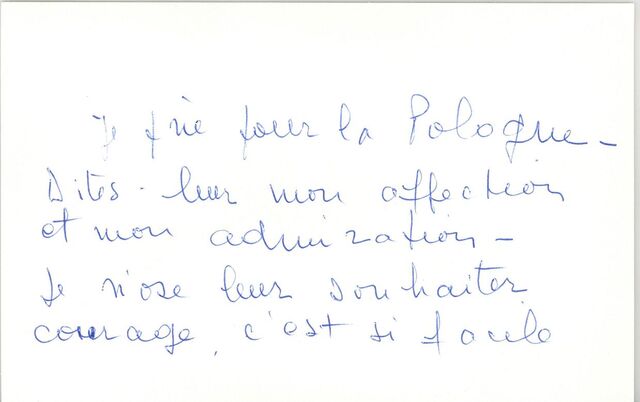 Je prie pour la Pologne -
Dites-leur mon affection
et mon admiration -
Je n'ose leur souhaiter
courage, c'est si facile